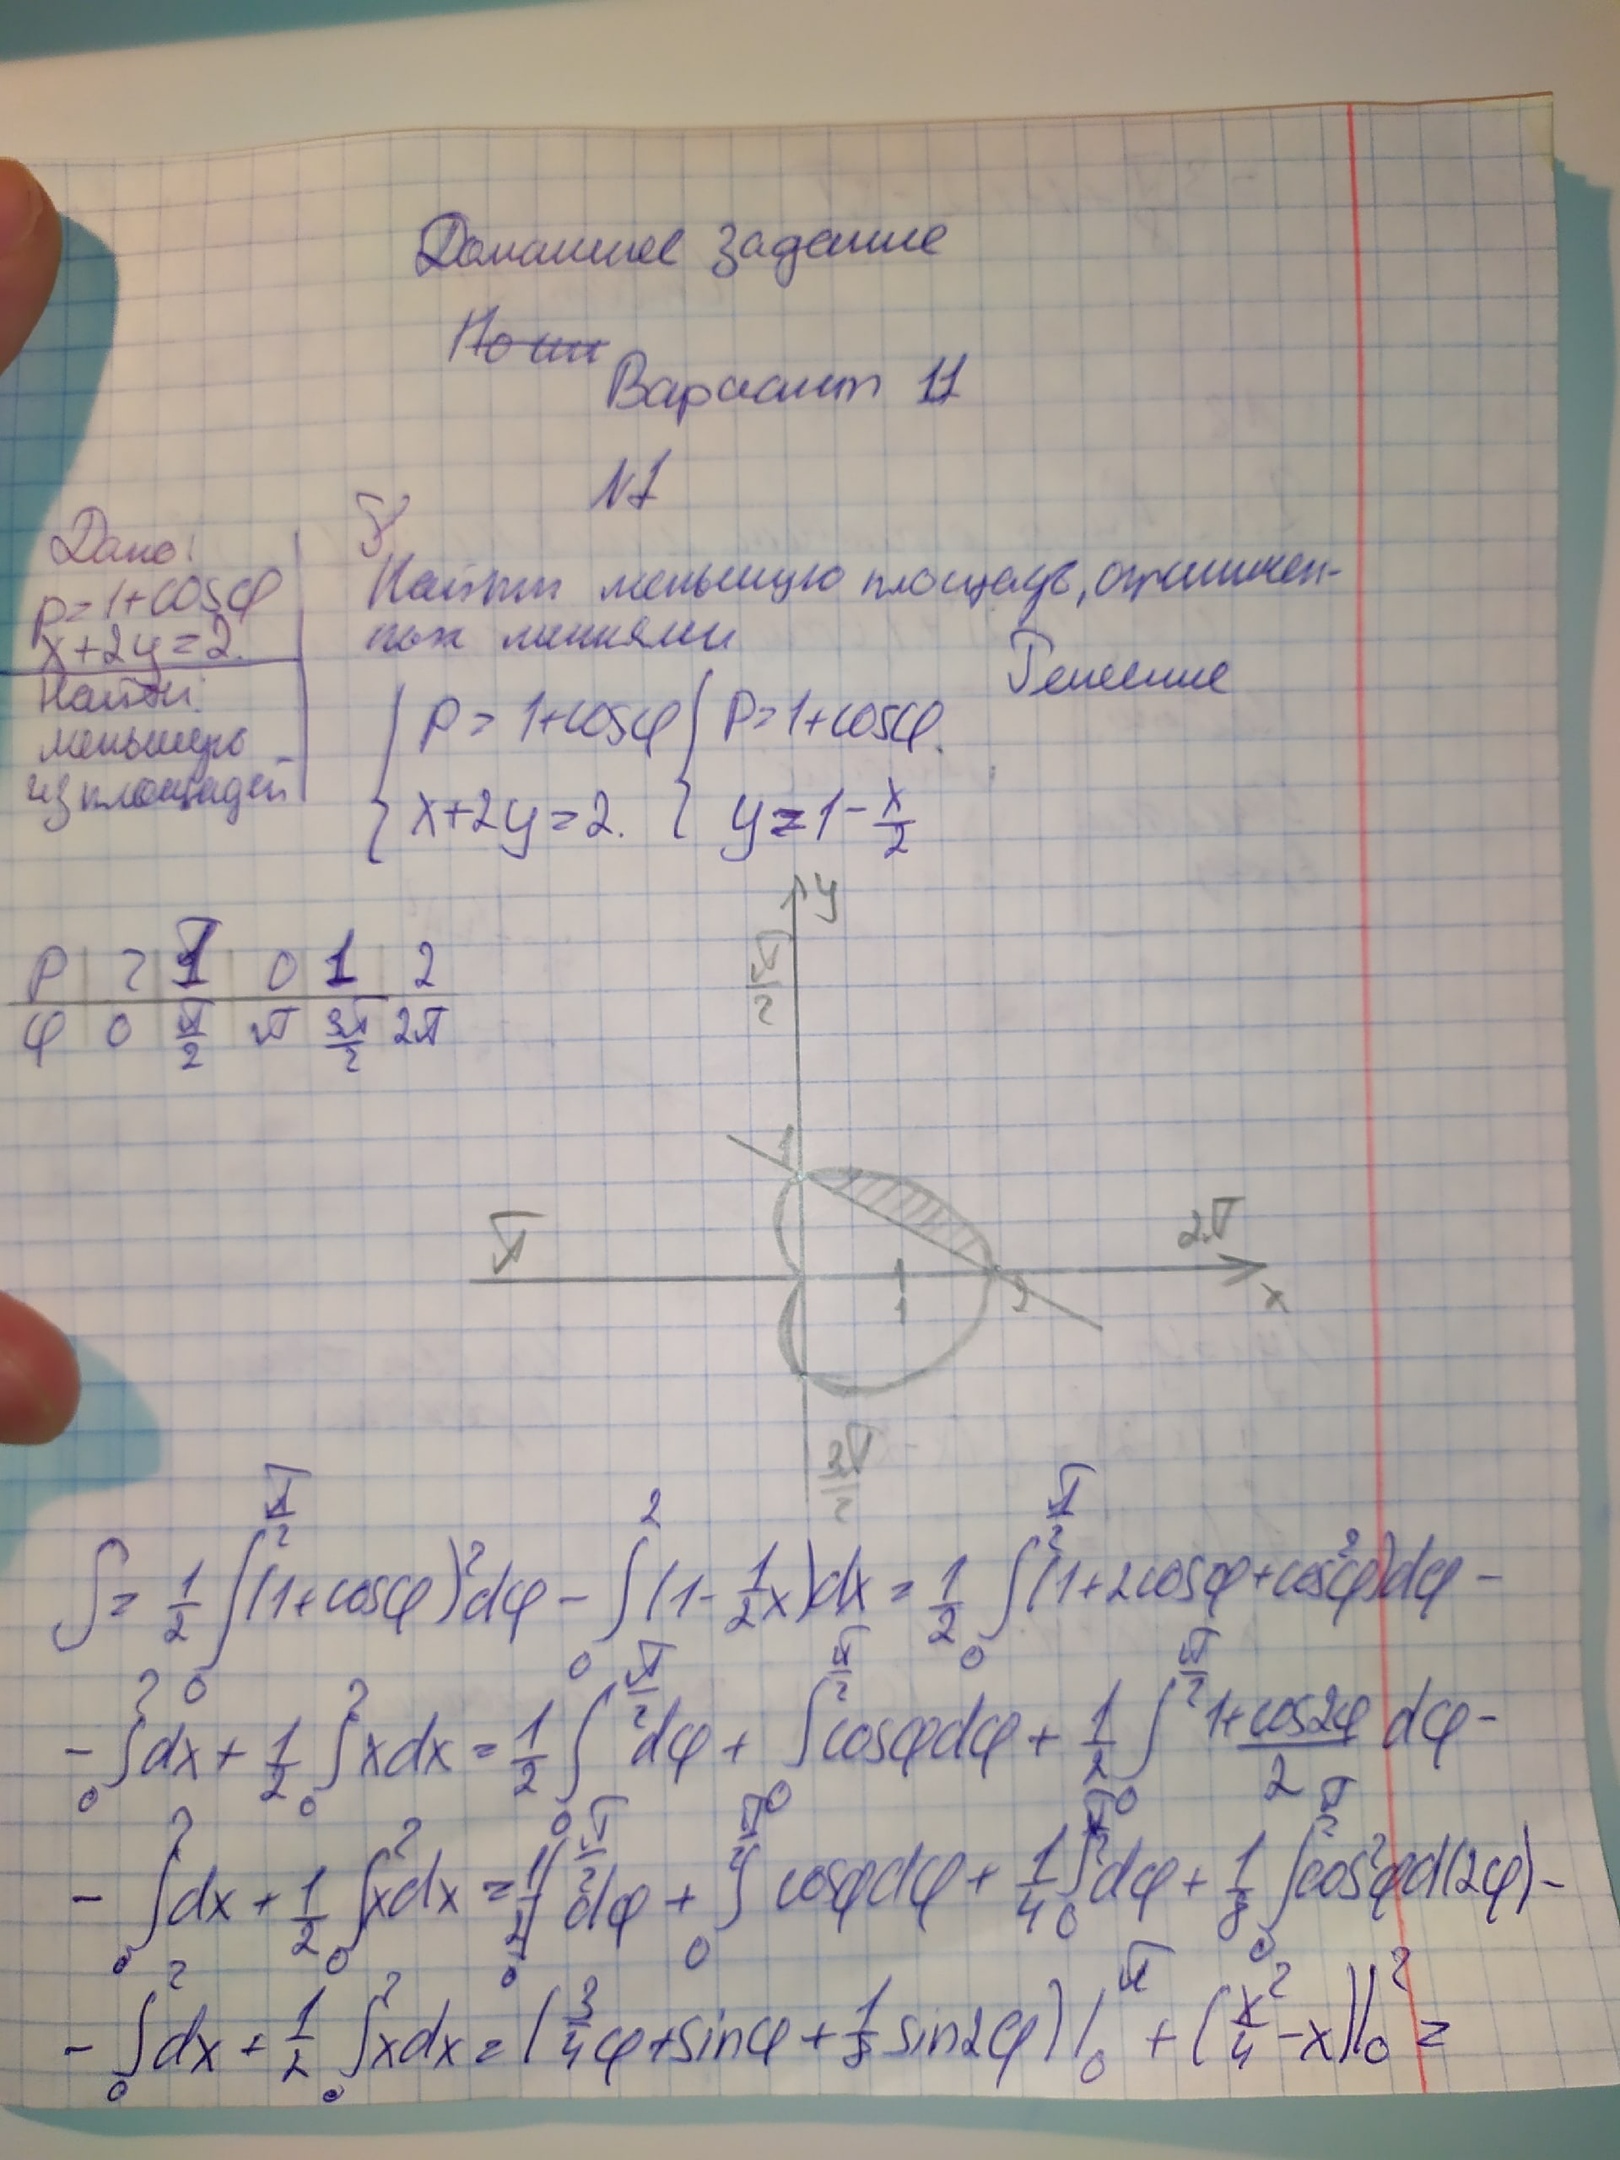 Домашнее задание
Вариант 11
№1
Дано:
ρ=1+cosφ
x+2y=2.
Найти:
меньшую
из площадей
Найти меньшую площадь, ограничен-
ную линиями
Решение
{ ρ = 1+cosφ { ρ=1+cosφ.
{ x+2y=2. { y=1-x/2
ρ | 2 | 1 | 0 | 1 | 2
φ | 0 | π/2 | π | 3π/2 | 2π
y
π/2
1
π
2π
1
2
x
3π/2
S = 1/2 ∫₀^(π/2) (1+cosφ)²dφ - ∫₀² (1-1/2 x)dx = 1/2 ∫₀^(π/2) (1+2cosφ+cos²φ)dφ -
- ∫₀² dx + 1/2 ∫₀² xdx = 1/2 ∫₀^(π/2) dφ + ∫₀^(π/2) cosφdφ + 1/2 ∫₀^(π/2) (1+cos2φ)/2 dφ -
- ∫₀² dx + 1/2 ∫₀² xdx = 1/2 ∫₀^(π/2) dφ + ∫₀^(π/2) cosφdφ + 1/4 ∫₀^(π/2) dφ + 1/8 ∫₀^(π/2) cos2φd(2φ) -
- ∫₀² dx + 1/2 ∫₀² xdx = (3/4 φ + sinφ + 1/8 sin2φ)|₀^π + (x²/4 - x)|₀² =